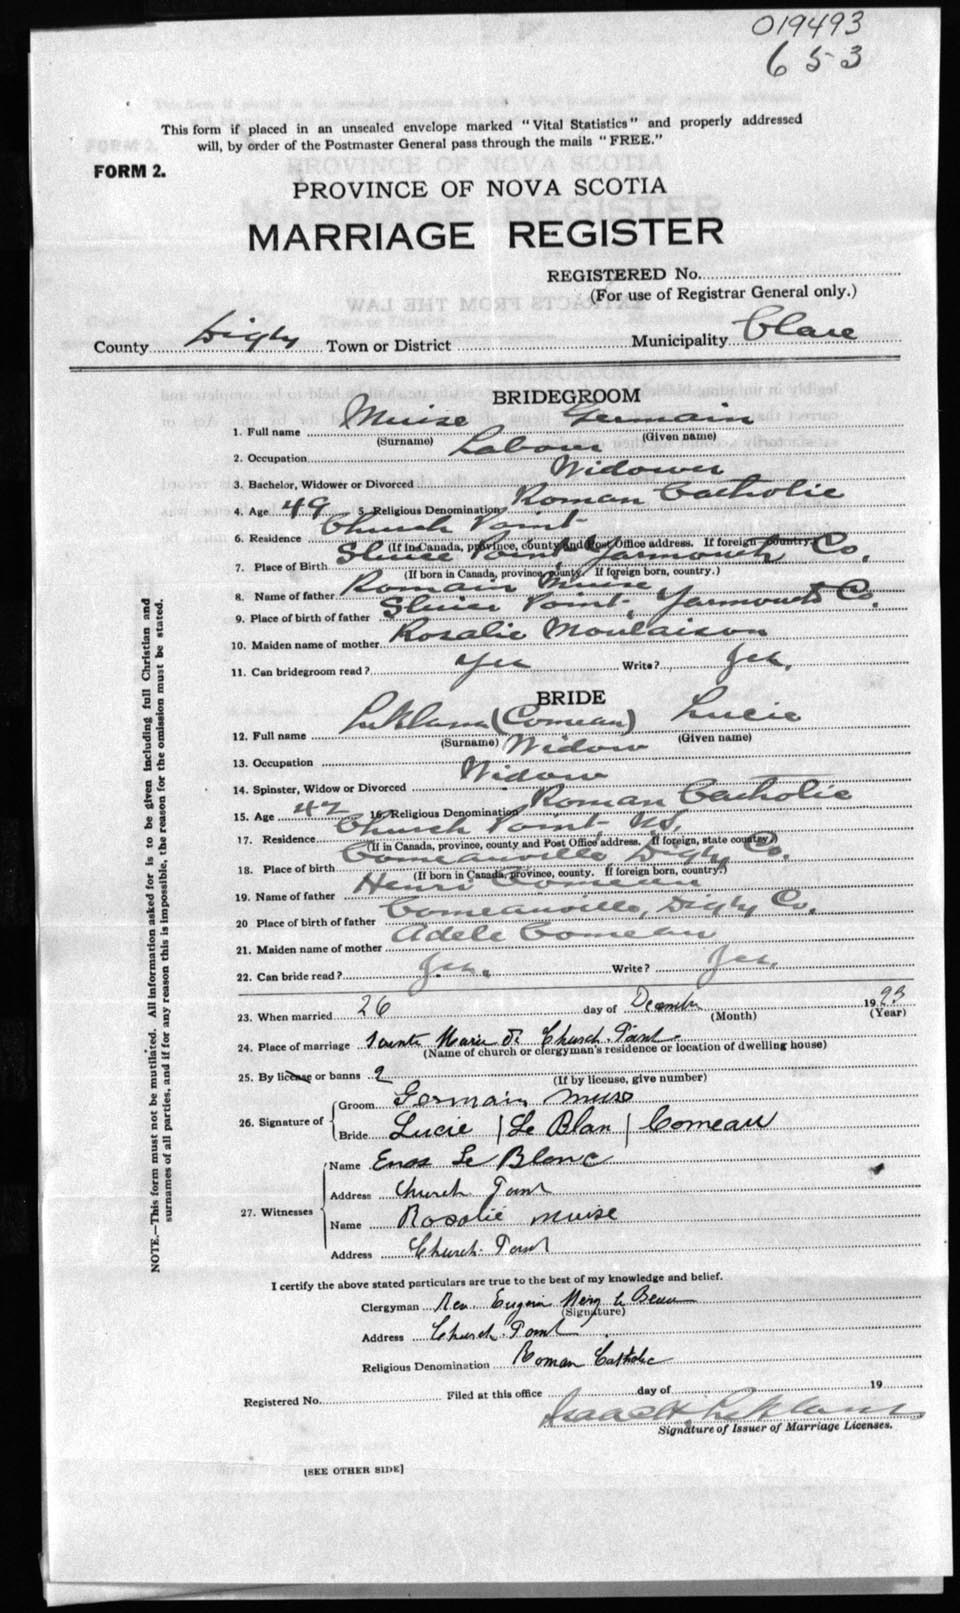 019493
653
This form if placed in an unsealed envelope marked "Vital Statistics" and properly addressed
will, by order of the Postmaster General pass through the mails "FREE."
FORM 2.
PROVINCE OF NOVA SCOTIA
MARRIAGE REGISTER
REGISTERED No.
(For use of Registrar General only.)
County Digby Town or District Municipality Clare
BRIDEGROOM
1. Full name Muise Germain
(Surname) (Given name)
2. Occupation Labour
3. Bachelor, Widower or Divorced Widower
4. Age 49 5. Religious Denomination Roman Catholic
6. Residence Church Point
(If in Canada, province, county and Post Office address. If foreign country.)
7. Place of Birth Sluice Point, Yarmouth Co.
(If born in Canada, province, county. If foreign born, country.)
8. Name of father Romain Muise
9. Place of birth of father Sluice Point, Yarmouth Co.
10. Maiden name of mother Rosalie Moulaison
11. Can bridegroom read? Yes Write? Yes.
BRIDE
12. Full name LeBlanc (Comeau) Lucie
(Surname) (Given name)
13. Occupation Widow
14. Spinster, Widow or Divorced Widow
15. Age 42 16. Religious Denomination Roman Catholic
17. Residence Church Point NS,
(If in Canada, province, county and Post Office address. If foreign, state country)
18. Place of birth Comeauville, Digby Co.
(If born in Canada, province, county. If foreign born, country.)
19. Name of father Henri Comeau
20 Place of birth of father Comeauville, Digby Co.
21. Maiden name of mother Adele Comeau
22. Can bride read? Yes. Write? Yes.
23. When married 26 day of Decembr 1923
(Month) (Year)
24. Place of marriage Sainte Marie de Church Point
(Name of church or clergyman's residence or location of dwelling house)
25. By license or banns 2 (If by license, give number)
26. Signature of
Groom Germain muse
Bride Lucie (Le Blan) Comeau
27. Witnesses
Name Enos Le Blanc
Address Church Point
Name Rosalie muise
Address Church Point
I certify the above stated particulars are true to the best of my knowledge and belief.
Clergyman Rev. Eugene
(Signature)
Address Church Point
Religious Denomination Roman Catholic
Registered No. Filed at this office day of 19
Isaac H. LeBlanc
Signature of Issuer of Marriage Licenses.
[SEE OTHER SIDE]
NOTE.—This form must not be mutilated. All information asked for is to be given including full Christian and
surnames of all parties, and if for any reason this is impossible, the reason for the omission must be stated.